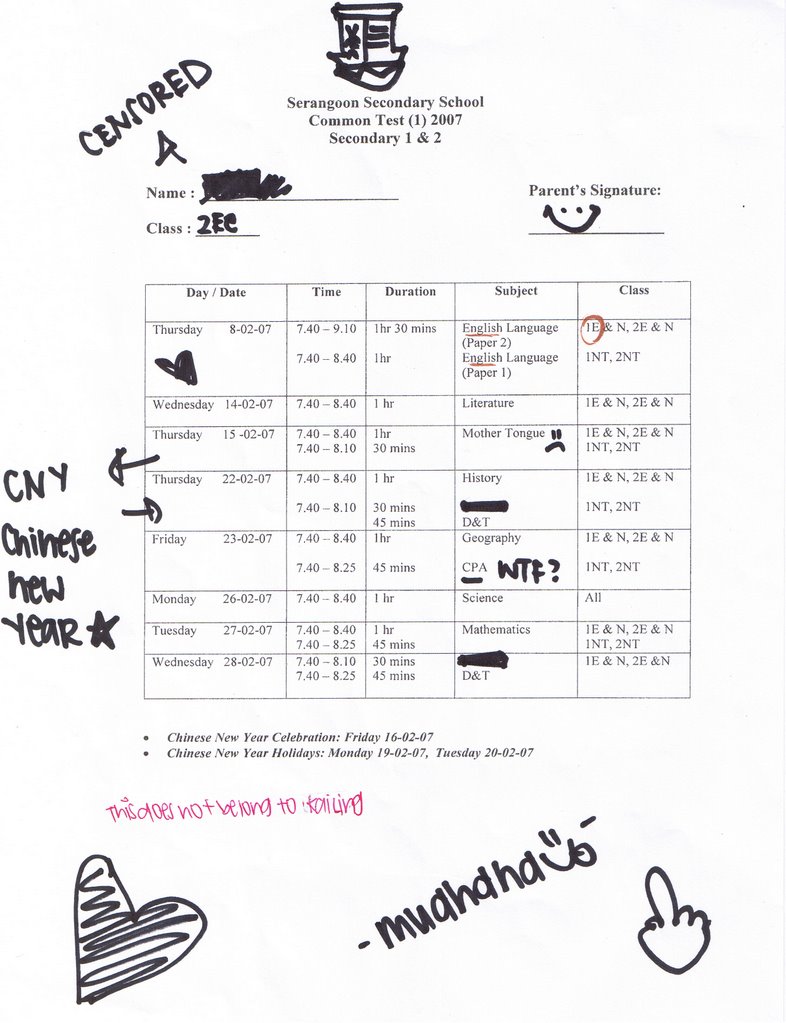 CENSORED
Serangoon Secondary School
Common Test (1) 2007
Secondary 1 & 2
Name :
Parent's Signature:
Class : 2EC
Day / Date Time Duration Subject Class
Thursday 8-02-07 7.40 – 9.10 1hr 30 mins English Language 1E & N, 2E & N
(Paper 2)
7.40 – 8.40 1hr English Language 1NT, 2NT
(Paper 1)
Wednesday 14-02-07 7.40 – 8.40 1 hr Literature 1E & N, 2E & N
Thursday 15 -02-07 7.40 – 8.40 1hr Mother Tongue 1E & N, 2E & N
7.40 – 8.10 30 mins 1NT, 2NT
Thursday 22-02-07 7.40 – 8.40 1 hr History 1E & N, 2E & N
7.40 – 8.10 30 mins 1NT, 2NT
45 mins D&T
Friday 23-02-07 7.40 – 8.40 1hr Geography 1E & N, 2E & N
7.40 – 8.25 45 mins CPA WTF? 1NT, 2NT
Monday 26-02-07 7.40 – 8.40 1 hr Science All
Tuesday 27-02-07 7.40 – 8.40 1 hr Mathematics 1E & N, 2E & N
7.40 – 8.25 45 mins 1NT, 2NT
Wednesday 28-02-07 7.40 – 8.10 30 mins 1E & N, 2E &N
7.40 – 8.25 45 mins D&T
CNY
Chinese
new
year
• Chinese New Year Celebration: Friday 16-02-07
• Chinese New Year Holidays: Monday 19-02-07, Tuesday 20-02-07
This does not belong to kailing
- muahaha -